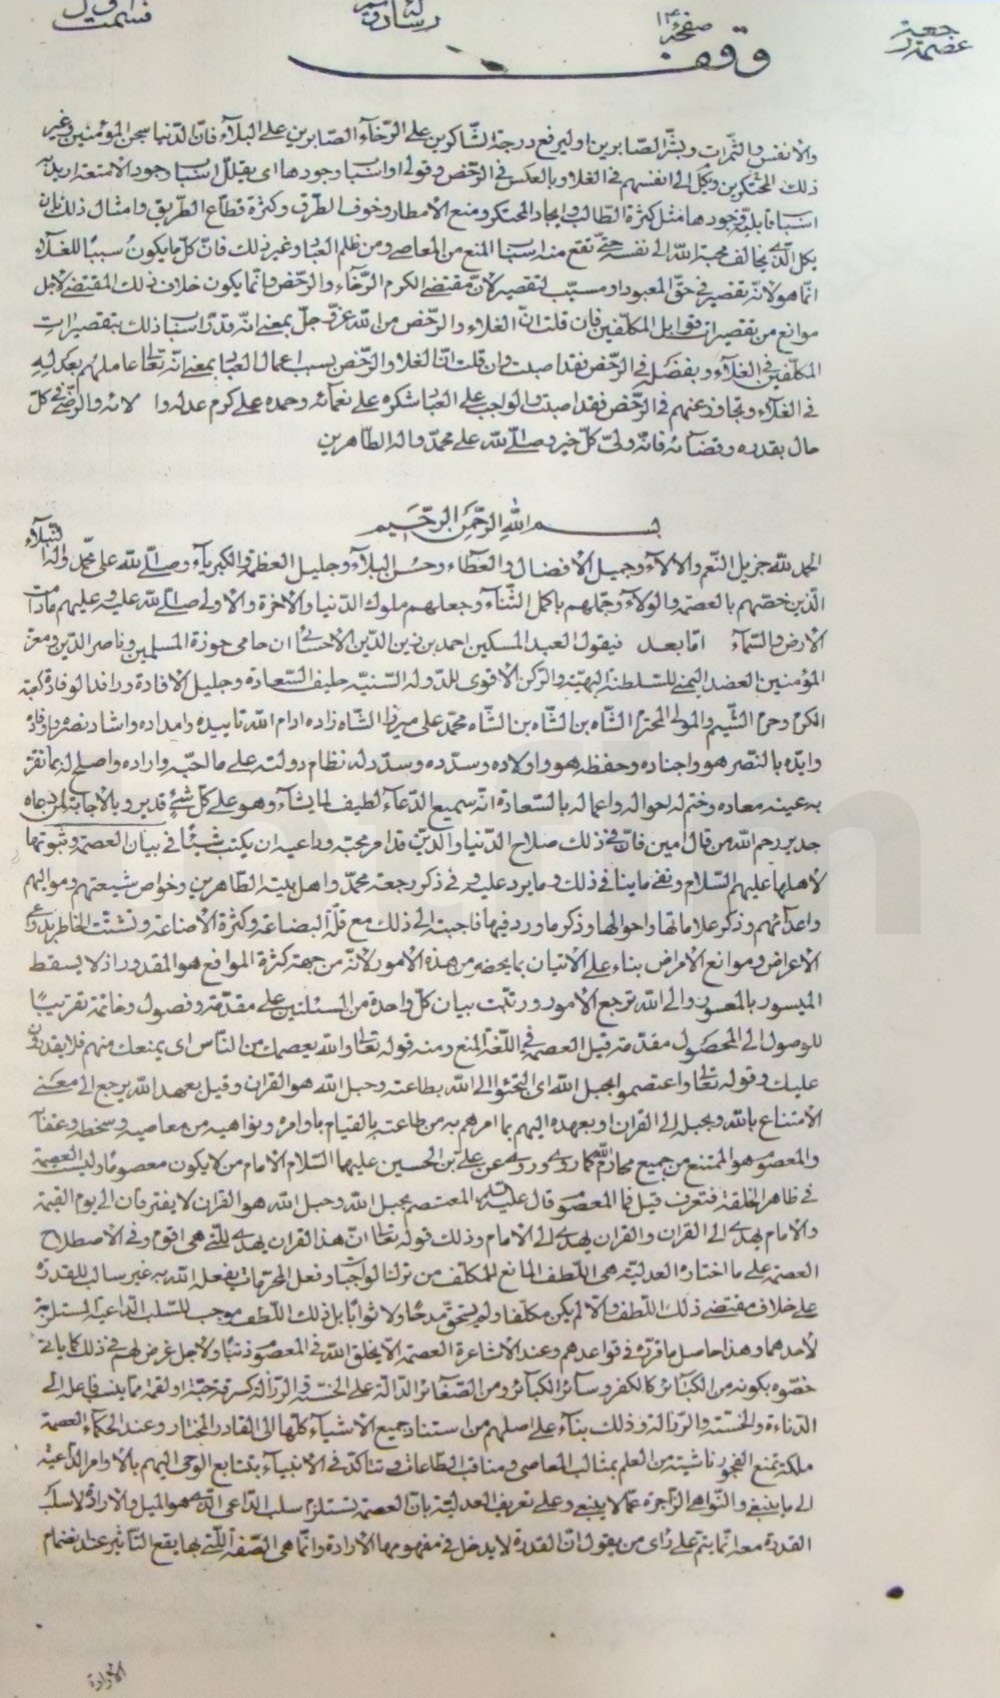 عصمة رجعة
صفحة ١٣٠
وقف
والانفس والثمرات وبشّر الصّابرين او ليرفع درجة الشّاكرين على الرّخآء والصّابرين على البلآء فانّ الدّنيا سجن المؤمنين وغير
ذلك المحتكرين ويكل الى انفسهم فى الغلا وبالعكس فى الرّخص وقولى او اسباب وجودها اى يقلل اسباب وجود الامتعة او يريد
اسباب وجودها مثل كثرة الطّالب وايجاد المحتكر ومنع الامطار وخوف الطّرق وكثرة قطّاع الطّريق وامثال ذلك فان
يكل الّذى يخالف محبة اللّه الى نفسه حتى تقع منه اسباب المنع من المعاصى ومن ظلم العباد وغير ذلك فانّ كلّ ما يكون سببًا للغلآء
انّما هو لانّه تقصير فى حقّ المعبود او مسبّب لتقصير لانّ مقتضى الكرم الرّخآء والرّخص وانّما يكون خلاف ذلك المقتضى لاجل
موانع من تقصيرات قوابل المكلّفين فان قلت انّ الغلاء والرّخص من اللّه عزّ وجلّ بمعنى انّه قدّر اسباب ذلك بتقصيرات
المكلّفين فى الغلآء وبفضله فى الرّخص فقد اصبت وان قلت انّ الغلا والرّخص بسبب اعمال العباد بمعنى انّه تعالى عاملهم بعدله
فى الغلآء وتجاوز عنهم فى الرّخص فقد اصبت والواجب على العباد شكره على نعمائه وحمده على كرم عدله و الائه والرّضى فى كلّ
حال بقدره وقضآئه فانّه ولىّ كلّ خير وصلّى اللّه على محمّد واله الطّاهرين
بسم اللّه الرّحمن الرّحيم
الحمد للّه جزيل النّعم والالاء وجميل الافضال والعطاء وحسن البلآء وجليل العظمة والكبريآء وصلّى اللّه على محمّد واله النّبلآء
الّذين خصّهم بالعصمة والولآء وجمّلهم باكمل الثّنآء وجعلهم ملوك الدّنيا والاخرة والاولى صلّى اللّه عليه وعليهم ما دامت
الارض والسّمآء امّا بعد فيقول العبد المسكين احمد بن زين الدّين الاحسائى ان حامى حوزة المسلمين وناصر الدّين ومعزّ
المؤمنين العضد اليمنى للسّلطنة البهيّة والرّكن الاقوى للدّولة السّنيّة حليف السّعادة وجليل الافادة ورافد الوفادة كعبة
الكرم وحرم الشّيم والمولى المحترم الشّاه بن الشّاه بن الشّاه محمّد على ميرزا الشّاه زاده ادام اللّه تاييده وامداده واشاد نصره
وايّده بالنّصر هو واجناده وحفظه هو واولاده وسدّده وسدّد له نظام دولته على ما احبّه واراده واصلح له بما تقرّ
به عينه معاده وختم له احواله واعماله بالسّعادة انّه سميع الدّعآء لطيف لما يشآء وهو على كلّ شىء قدير وبالاجابة لمن دعاه
جدير رحم اللّه من قال امين فانّ فى ذلك صلاح الدّنيا والدّين قد امر محبّه وداعيه ان يكتب شيئًا فى بيان العصمة وثبوتها
لاهلها عليهم السّلام ونفى ما ينافى ذلك وما يرد عليه وفى ذكر رجعة محمّد واهل بيته الطّاهرين وخواصّ شيعتهم ومواليهم
واعدآئهم وذكر علاماتها واحوالها وذكر ما ورد فيها فاجبته الى ذلك مع قلّة البضاعة وكثرة الاضاعة وتشتّت الخاطر بدواعى
الاعراض وموانع الامراض بناء على الاتيان بما يحضر من هذه الامور لانّه من جهة كثرة الموانع هو المقدور اذ لا يسقط
الميسور بالمعسور والى اللّه ترجع الامور ورتّبت بيان كلّ واحدة من المسئلتين على مقدّمة وفصول وخاتمة تقريبًا
للوصول الى المحصول مقدّمة قيل العصمة فى اللّغة المنع ومنه قوله تعالى واللّه يعصمك من النّاس اى يمنعك منهم فلا يقدرون
عليك وقوله تعالى واعتصموا بحبل اللّه اى التجئوا الى اللّه بطاعته وحبل اللّه هو القران وقيل بعهد اللّه يرجع الى معنى
الامتناع باللّه وبحبله الى القران او بعهده اليهم بما امرهم به من طاعته بالقيام باوامره ونواهيه من معاصيه وسخطه وعقابه
والمعصوم هو الممتنع من جميع محارم اللّه كما روى وروى عن على بن الحسين عليهما السّلام الامام منّا لا يكون الا معصومًا وليست العصمة
فى ظاهر الخلقة فتعرف قيل فما المعصوم قال عليه السلم المعتصم بحبل اللّه وحبل اللّه هو القران لا يفترقان الى يوم القيمة
والامام يهدى الى القران والقران يهدى الى الامام وذلك قوله تعالى انّ هذا القران يهدى للّتى هى اقوم وفى الاصطلاح
العصمة على ما اختاره العدليّة هى اللّطف المانع للمكلّف من ترك الواجبات وفعل المحرّمات يفعله اللّه به غير سالب للقدرة
على خلاف مقتضى ذلك اللّطف والّا لم يكن مكلّفًا ولم يستحقّ مدحًا ولا ثوابًا بل ذلك اللّطف موجب لسلب الدّاعية المستلزمة
لاحدهما وهذا حاصل ما قرّره فى قواعدهم وعند الاشاعرة العصمة الّا يخلق اللّه فى المعصوم ذنبًا ولاجل غرض لهم فى ذلك كما ياتى
خصّوه بكونه من الكبآئر كالكفر وسآئر الكبآئر ومن الصّغائر الدّالّة على الخسّة والرّذالة كسرقة حبّة او لقمة ممّا ينسب فاعله الى
الدّناءة والخسّة والرّذالة وذلك بنآء على اصلهم من استناد جميع الاشيآء كلّها الى القادر المختار وعند الحكماء العصمة
ملكة تمنع الفجور ناشئة من العلم بمثالب المعاصى ومناقب الطّاعات وتتاكّد فى الانبيآء بتتابع الوحى اليهم بالاوامر الدّاعية
الى ما ينبغى والنّواهى الزّاجرة عمّا لا ينبغى وعلى تعريف العدليّة بانّ العصمة تستلزم سلب الدّاعى الّذى هو الميل والارادة لا سلب
القدرة معه انّما يتمّ على راى من يقول انّ القدرة لا يدخل فى مفهومها الارادة وانّما هى الصّفة الّتى بها يقع التّاثير عند انضمام
الارادة